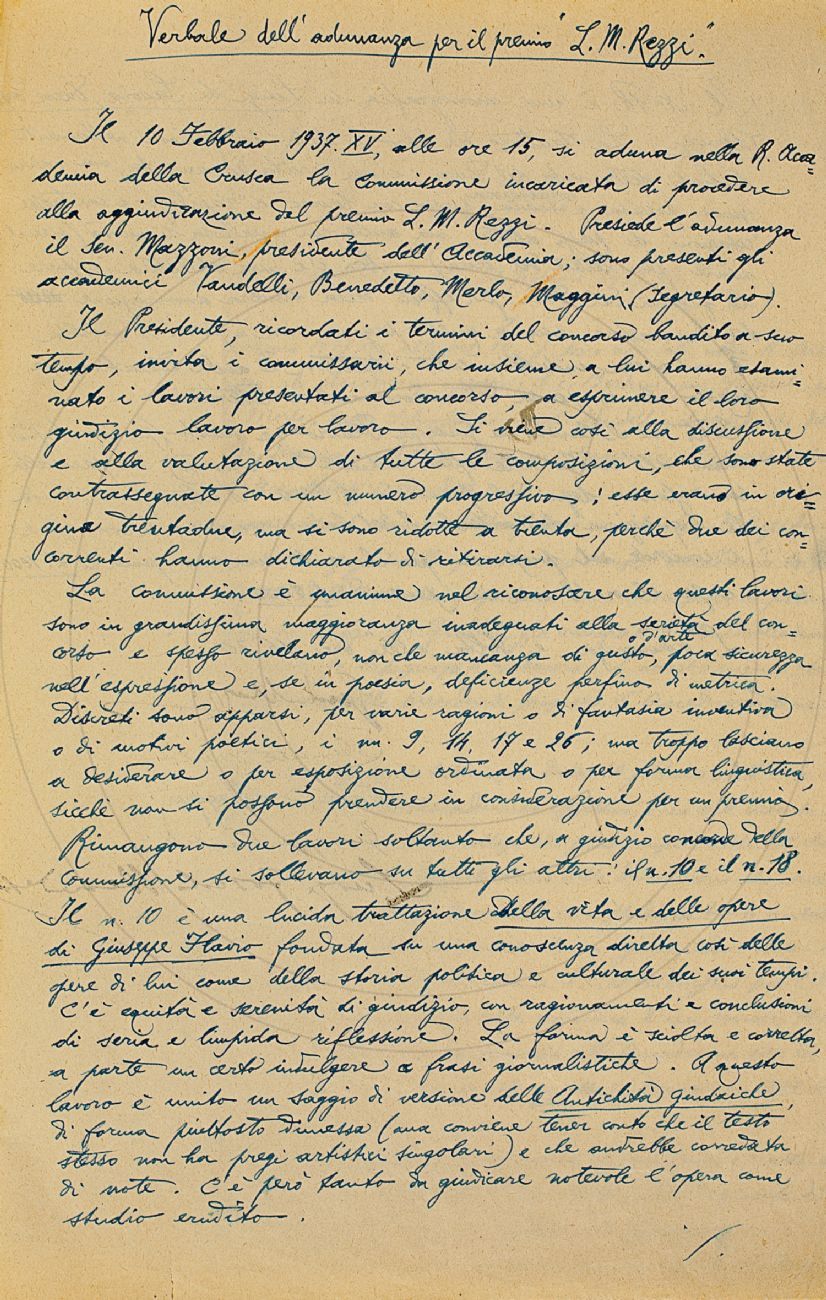 Verbale dell'adunanza per il premio "L. M. Rezzi".
Il 10 Febbraio 1937. XV, alle ore 15, si aduna nella R. Acca=
demia della Crusca la Commissione incaricata di procedere
alla aggiudicazione del premio L. M. Rezzi. Presiede l'adunanza
il Sen. Mazzoni, presidente dell'Accademia; sono presenti gli
accademici Vandelli, Benedetto, Merlo, Maggini (Segretario).
Il Presidente, ricordati i termini del concorso bandito a suo
tempo, invita i commissarii, che insieme a lui hanno esami=
nato i lavori presentati al concorso, a esprimere il loro
giudizio lavoro per lavoro. Si viene così alla discussione
e alla valutazione di tutte le composizioni, che sono state
contrassegnate con un numero progressivo; esse erano in ori=
gine trentadue, ma si sono ridotte a trenta, perchè due dei con=
correnti hanno dichiarato di ritirarsi.
La commissione è unanime nel riconoscere che questi lavori
sono in grandissima maggioranza inadeguati alla serietà del con=
o d'arte
corso e spesso rivelano, non che mancanza di gusto, poca sicurezza
nell'espressione e, se in poesia, deficienze perfino di metrica.
Discreti sono apparsi, per varie ragioni o di fantasia inventiva
o di motivi poetici, i nn. 9, 14, 17 e 26; ma troppo lasciano
a desiderare o per esposizione ordinata o per forma linguistica,
sicchè non si possono prendere in considerazione per un premio.
Rimangono due lavori soltanto che, a giudizio concorde della
Commissione, si sollevano su tutti gli altri: il n. 10 e il n. 18.
Il n. 10 è una lucida trattazione Della vita e delle opere
di Giuseppe Flavio fondata su una conoscenza diretta così delle
opere di lui come della storia politica e culturale dei suoi tempi.
C'è equità e serenità di giudizio, con ragionamenti e conclusioni
di seria e limpida riflessione. La forma è sciolta e corretta,
a parte un certo indulgere a frasi giornalistiche. A questo
lavoro è unito un saggio di versione delle Antichità giudaiche,
di forma piuttosto dimessa (ma conviene tener conto che il testo
stesso non ha pregi artistici singolari) e che andrebbe corredata
di note. C'è però tanto da giudicare notevole l'opera come
studio erudito.